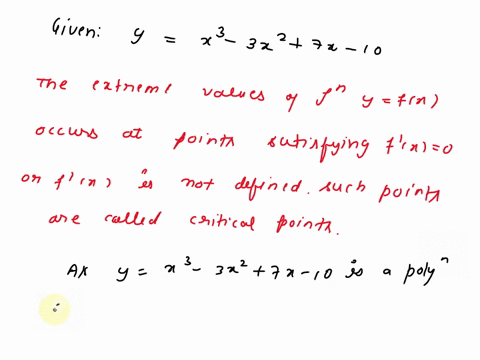 Given: y = x³ - 3x² + 7x - 10
The extreme values of fⁿ y = f(x)
occurs at points satisfying f'(x) = 0
or f'(x) is not defined. such points
are called critical points.
As y = x³ - 3x² + 7x - 10 is a polyⁿ